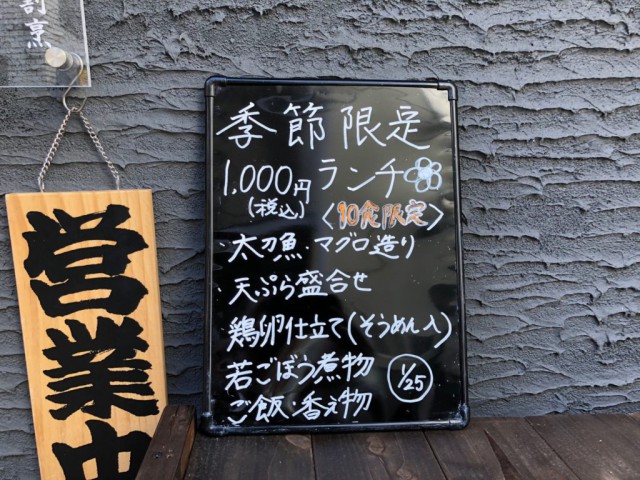 割烹
季節限定
1,000円ランチ
(税込)
〈10食限定〉
・太刀魚・マグロ造り
・天ぷら盛合せ
・鶏卵仕立て(そうめん入)
・若ごぼう煮物
・ご飯・香え物
1/25
営業中